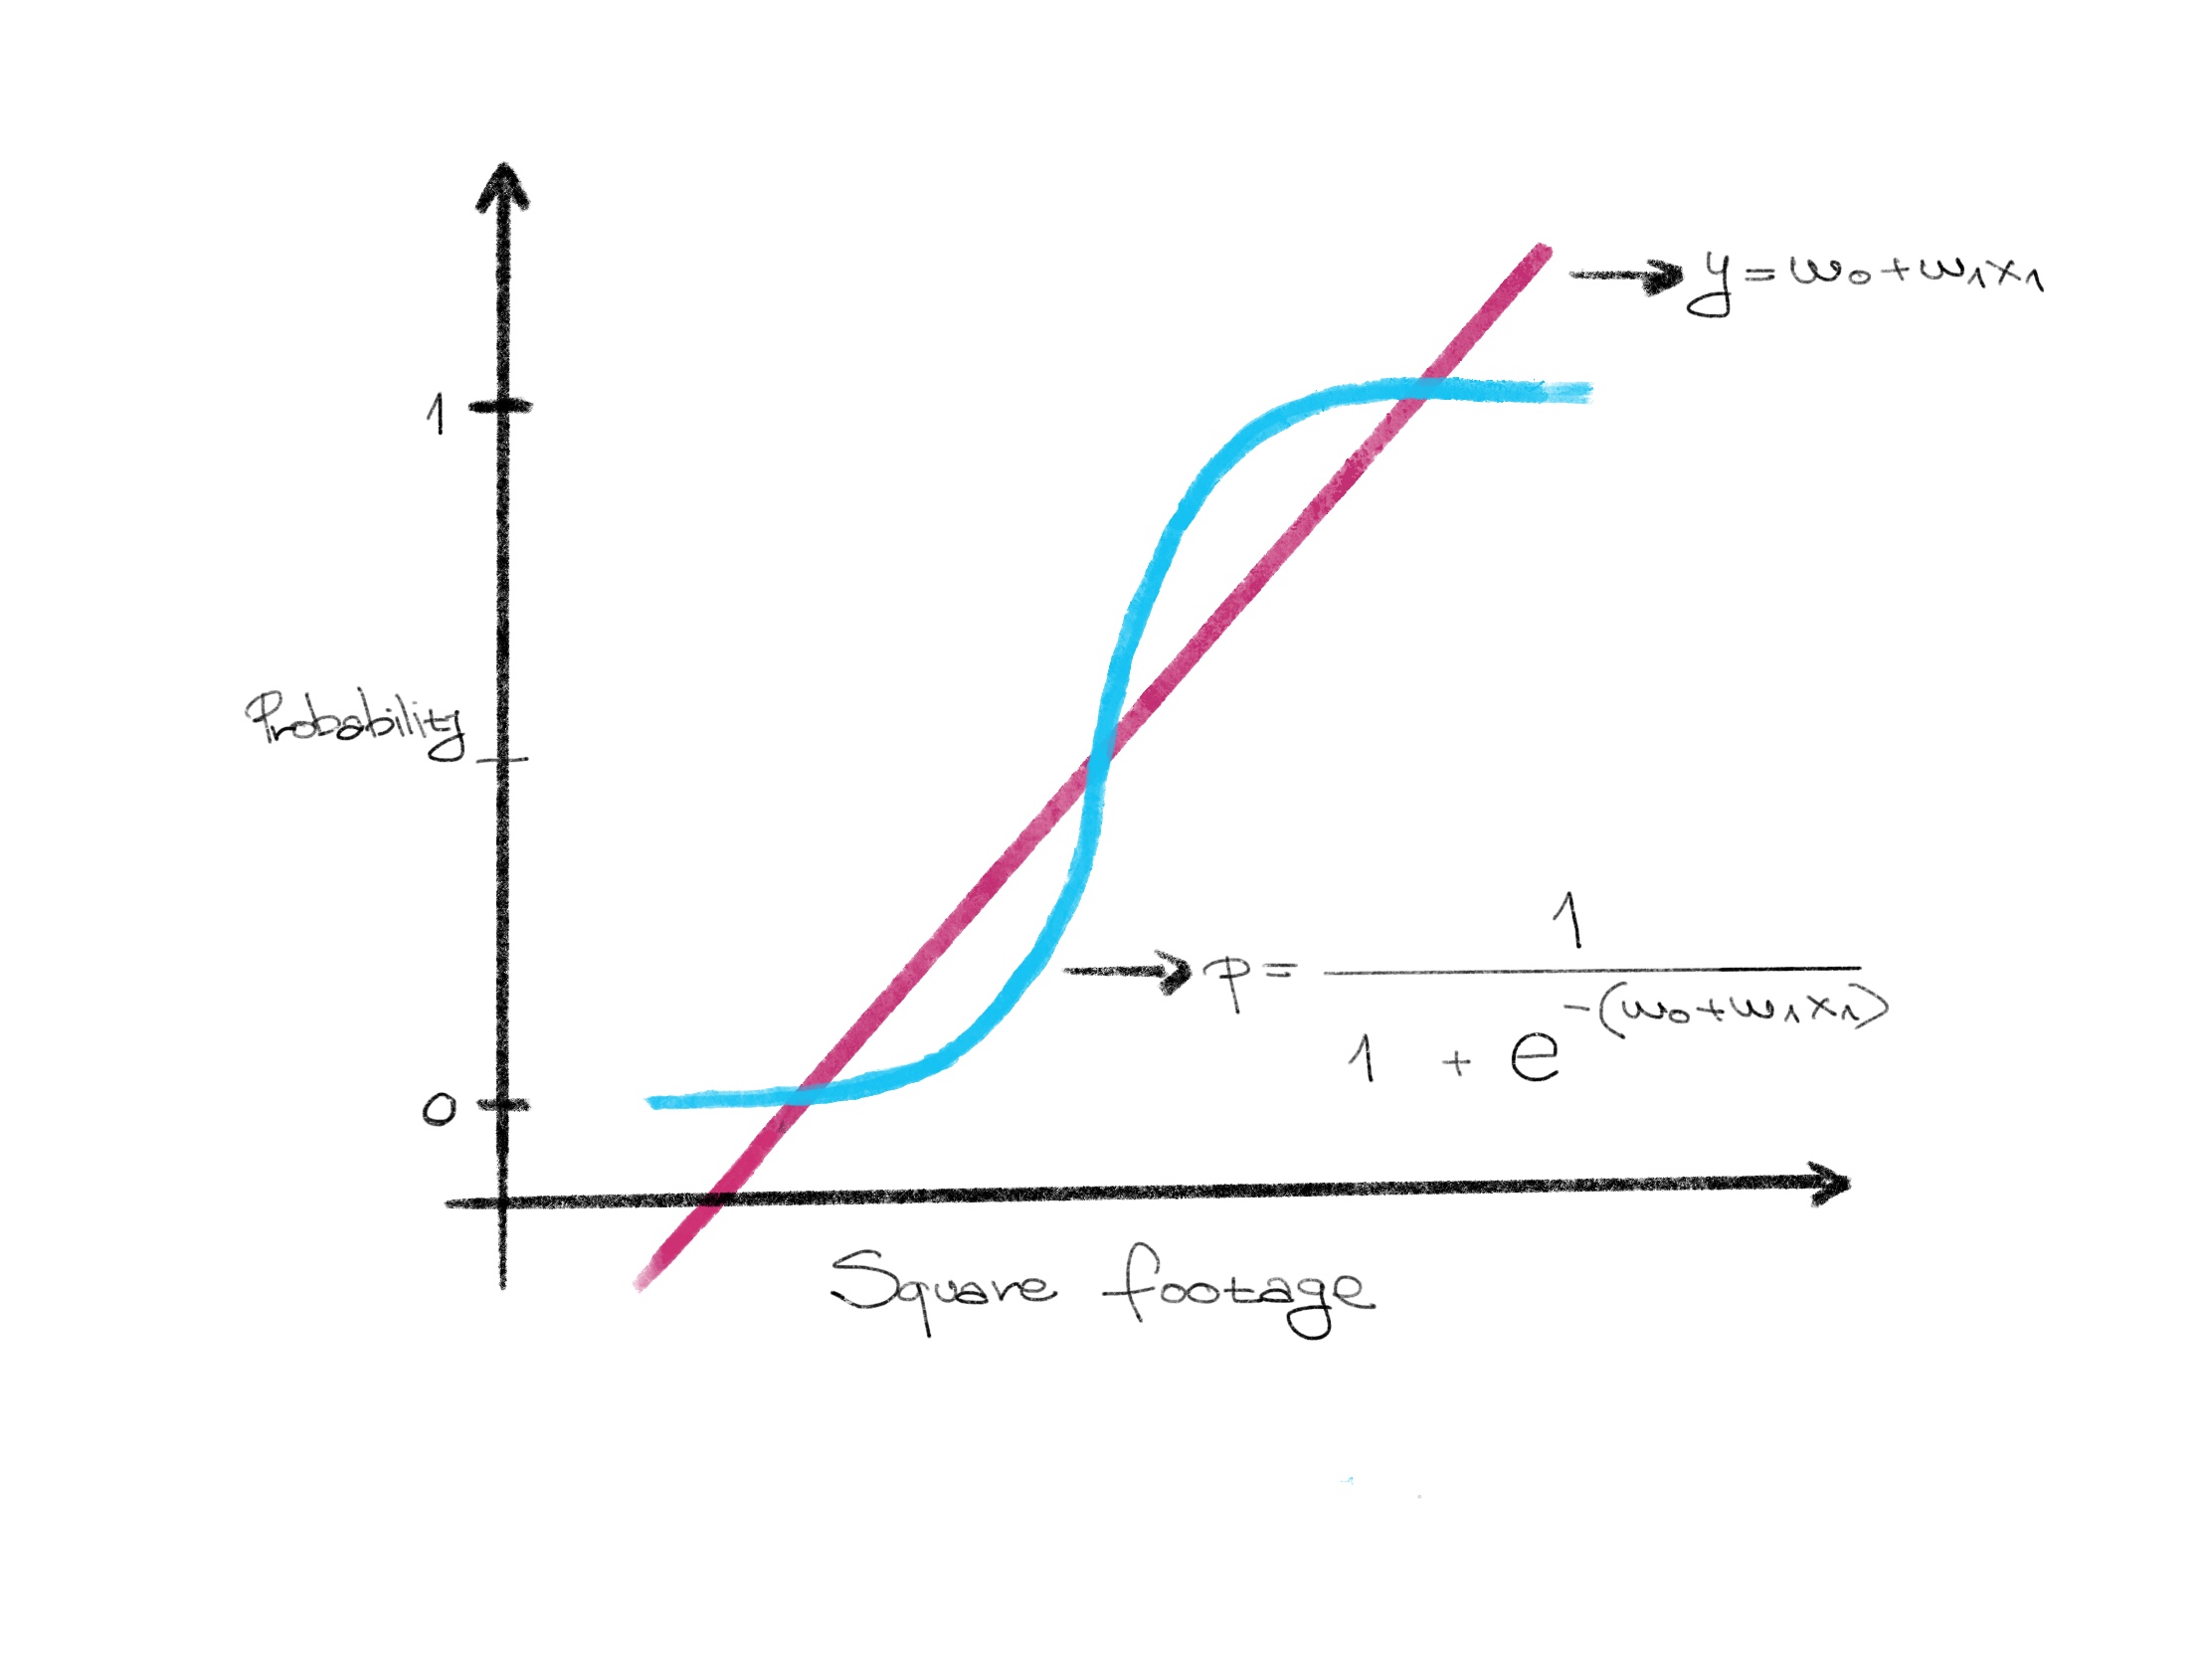 y = w₀ + w₁x₁
1
Probability
1
p =
1 + e^-(w₀ + w₁x₁)
0
Square footage